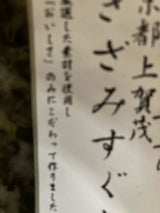 京都上賀茂
きざみすぐ
厳選した素材を使用し
「おいしさ」のみにこだわって作りました